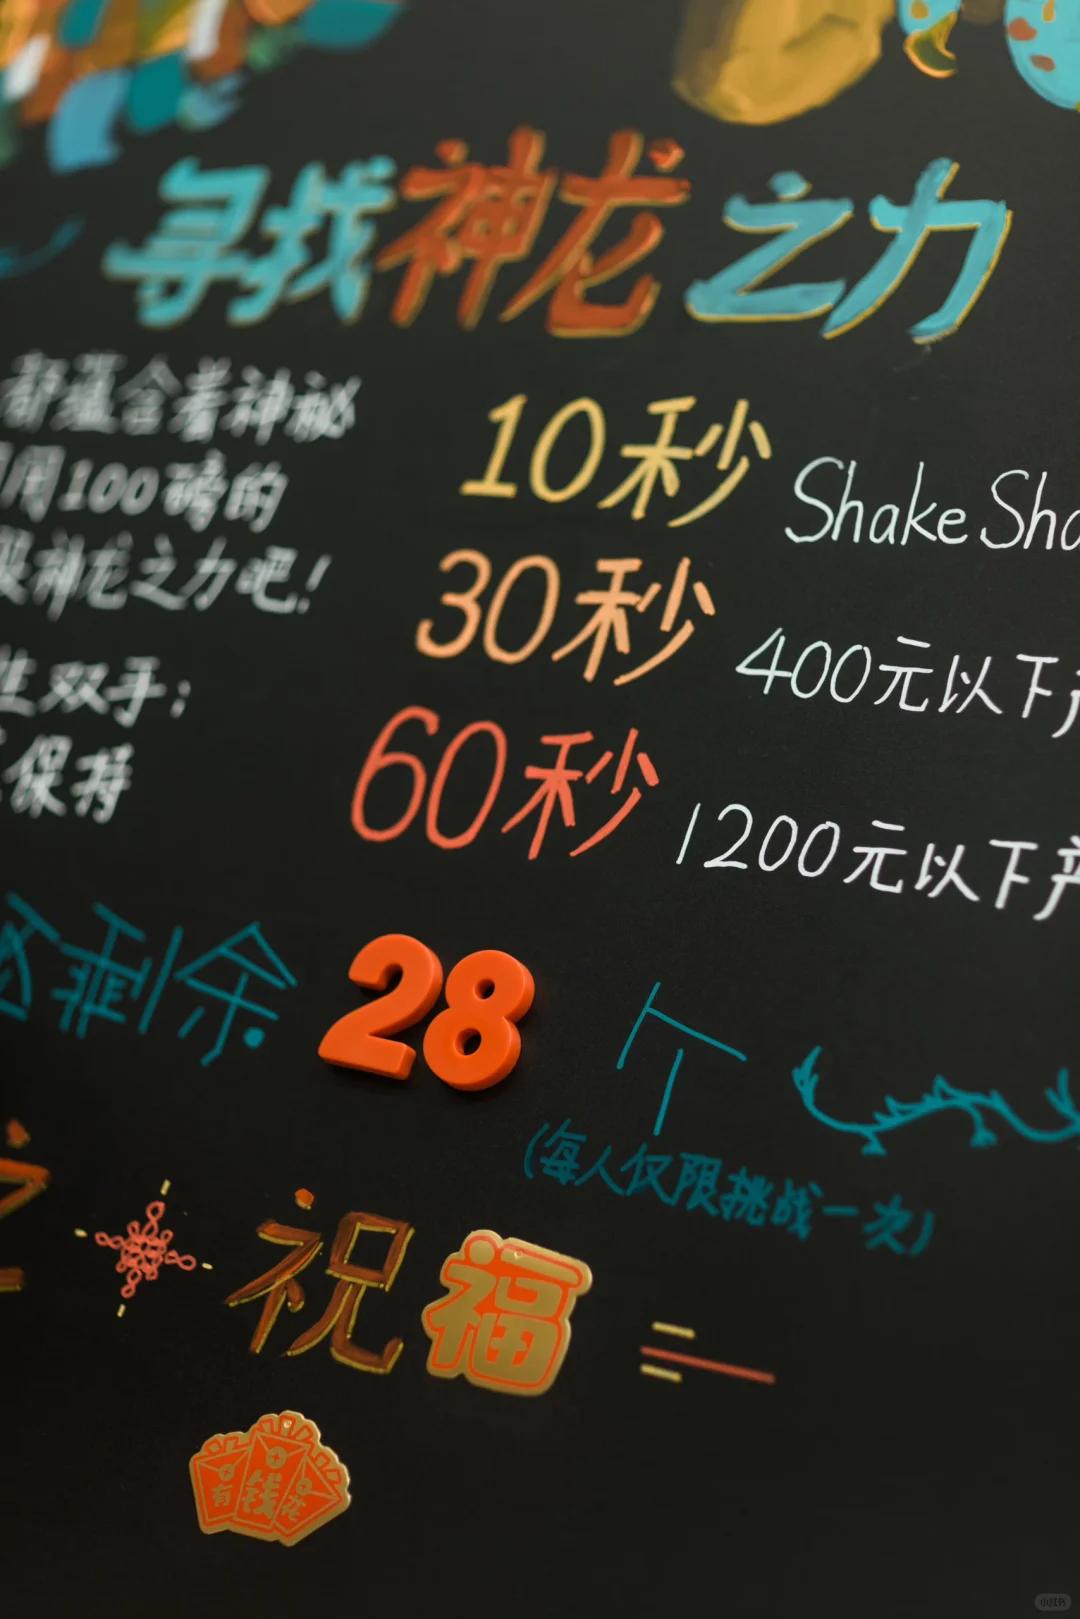 寻找神龙之力
都蕴含着神秘
用100磅的
神龙之力吧！
10秒 Shake Sha
30秒 400元以下
60秒 1200元以下产
生双手；
保持
还剩余 28 个
(每人仅限挑战一次)
之 祝福
有钱花
小红书